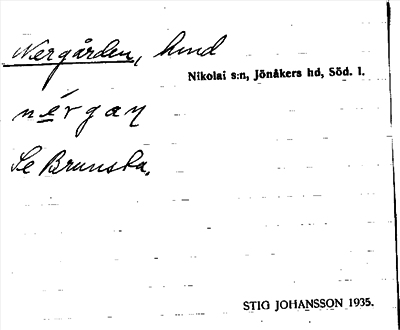 Nergården, hmd
Nikolai s:n, Jönåkers hd, Söd. l.
nérgaɳ
Se Brunsta.
STIG JOHANSSON 1935.